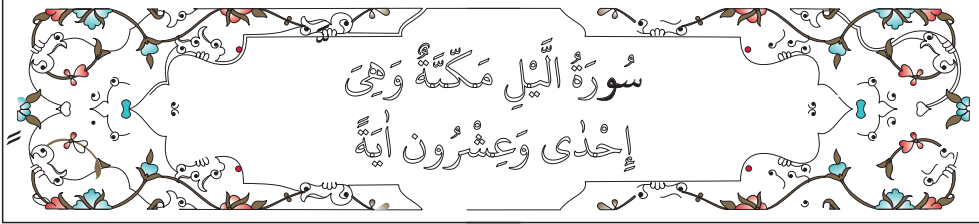 سُورَةُ الَّيْلِ مَكِّيَّةٌ وَهِىَ
إِحْدٰى وَعِشْرُون اٰيَةً